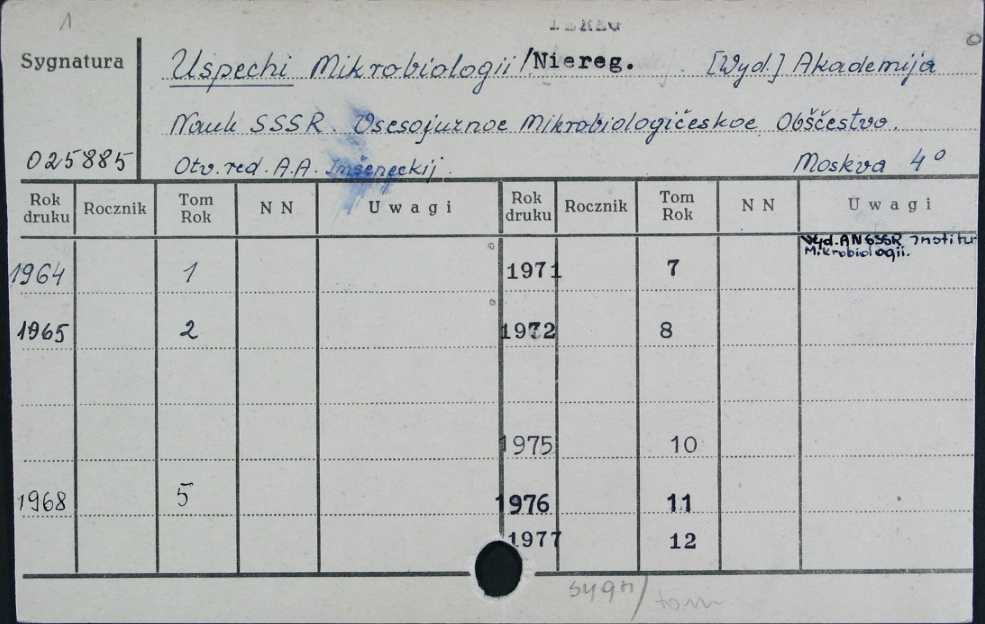 1
Sygnatura
Uspechi Mikrobiologii /Niereg. [Wyd.] Akademija
Nauk SSSR. Vsesojuznoe Mikrobiologičeskoe Obščestvo.
025885 Otv. red. A.A. Imšeneckij. Moskva 4°
Rok druku Rocznik Tom Rok N N U w a g i Rok druku Rocznik Tom Rok N N U w a g i
1964 1 1971 7 Wyd. AN SSSR Institu
Mikrobiologii.
1965 2 1972 8
1975 10
1968 5 1976 11
1977 12
sygn/ tom